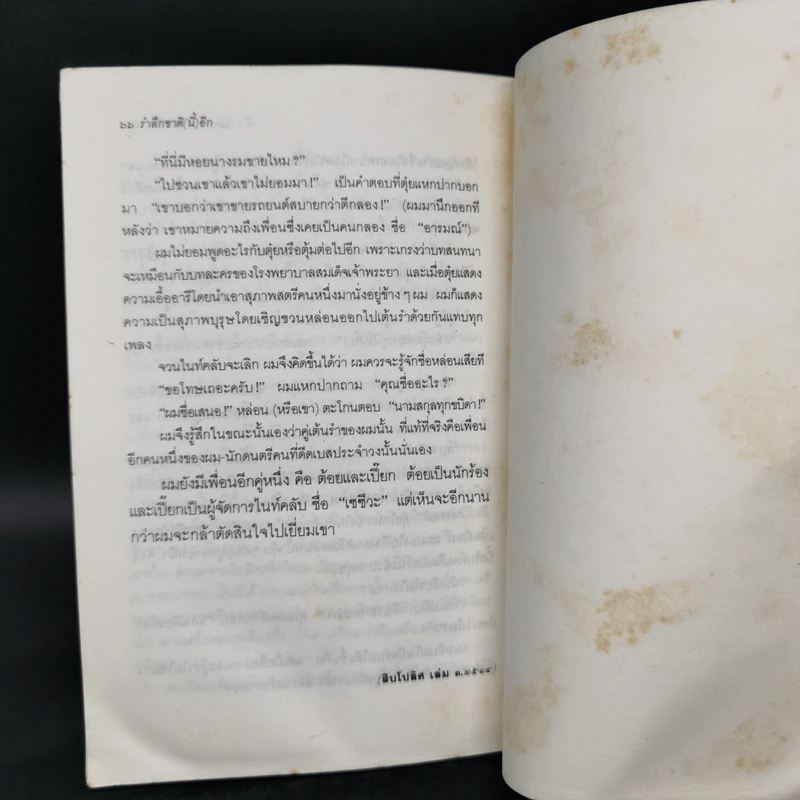 ๖๖ รำลึกชาติ(นี้)อีก
“ที่นี่มีหอยนางรมขายไหม ?”
“ไปชวนเขาแล้วเขาไม่ยอมมา !” เป็นคำตอบที่ตุ๋ยแหกปากบอก
มา “เขาบอกว่าเขาขายรถยนต์สบายกว่าตีกลอง !” (ผมมานึกออกที
หลังว่า เขาหมายความถึงเพื่อนซึ่งเคยเป็นคนกลอง ชื่อ “อารมณ์”)
ผมไม่ยอมพูดอะไรกับตุ๋ยหรือตุ้มต่อไปอีก เพราะเกรงว่าบทสนทนา
จะเหมือนกับบทละครของโรงพยาบาลสมเด็จเจ้าพระยา และเมื่อตุ๋ยแสดง
ความเอื้ออารีโดยนำเอาสุภาพสตรีคนหนึ่งมานั่งอยู่ข้าง ๆ ผม ผมก็แสดง
ความเป็นสุภาพบุรุษโดยเชิญชวนหล่อนออกไปเต้นรำด้วยกันแทบทุก
เพลง
จวนไนท์คลับจะเลิก ผมจึงคิดขึ้นได้ว่า ผมควรจะรู้จักชื่อหล่อนเสียที
“ขอโทษเถอะครับ !” ผมแหกปากถาม “คุณชื่ออะไร ?”
“ผมชื่อเสนอ !” หล่อน (หรือเขา) ตะโกนตอบ “นามสกุลทุกขบิดา !”
ผมจึงรู้สึกในขณะนั้นเองว่าคู่เต้นรำของผมนั้น ที่แท้ที่จริงคือเพื่อน
อีกคนหนึ่งของผม-นักดนตรีคนที่ดีดเบสประจำวงนั้นนั่นเอง
ผมยังมีเพื่อนอีกคู่หนึ่ง คือ ต้อยและเปี๊ยก ต้อยเป็นนักร้อง
และเปี๊ยกเป็นผู้จัดการไนท์คลับ ชื่อ “เซซีวะ” แต่เห็นจะอีกนาน
กว่าผมจะกล้าตัดสินใจไปเยี่ยมเขา
(สิบโปลิศ เล่ม ๓,๒๕๑๔)